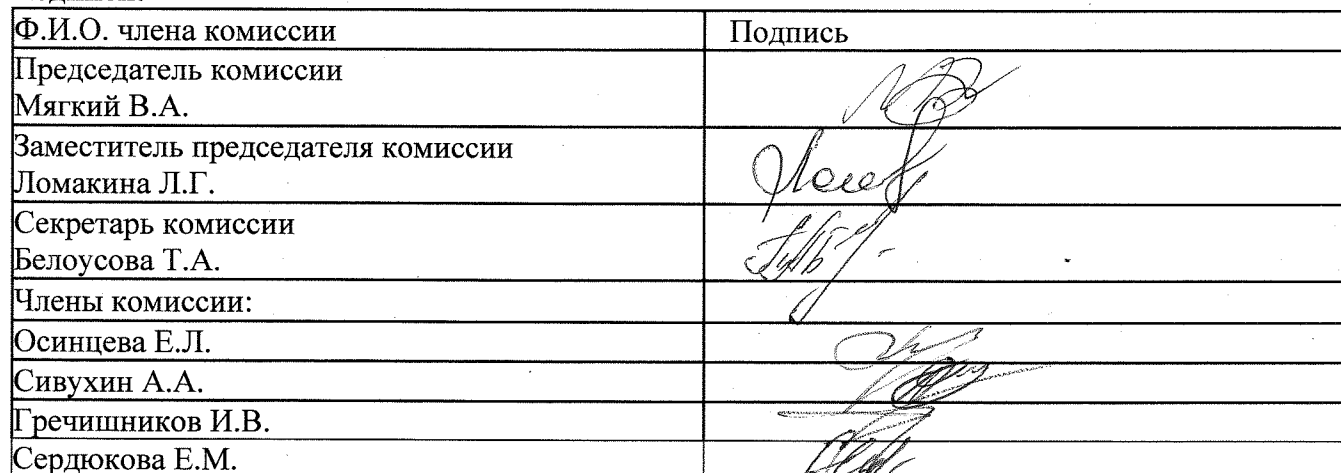 Ф.И.О. члена комиссии
Подпись
Председатель комиссии
Мягкий В.А.
Заместитель председателя комиссии
Ломакина Л.Г.
Секретарь комиссии
Белоусова Т.А.
Члены комиссии:
Осинцева Е.Л.
Сивухин А.А.
Гречишников И.В.
Сердюкова Е.М.